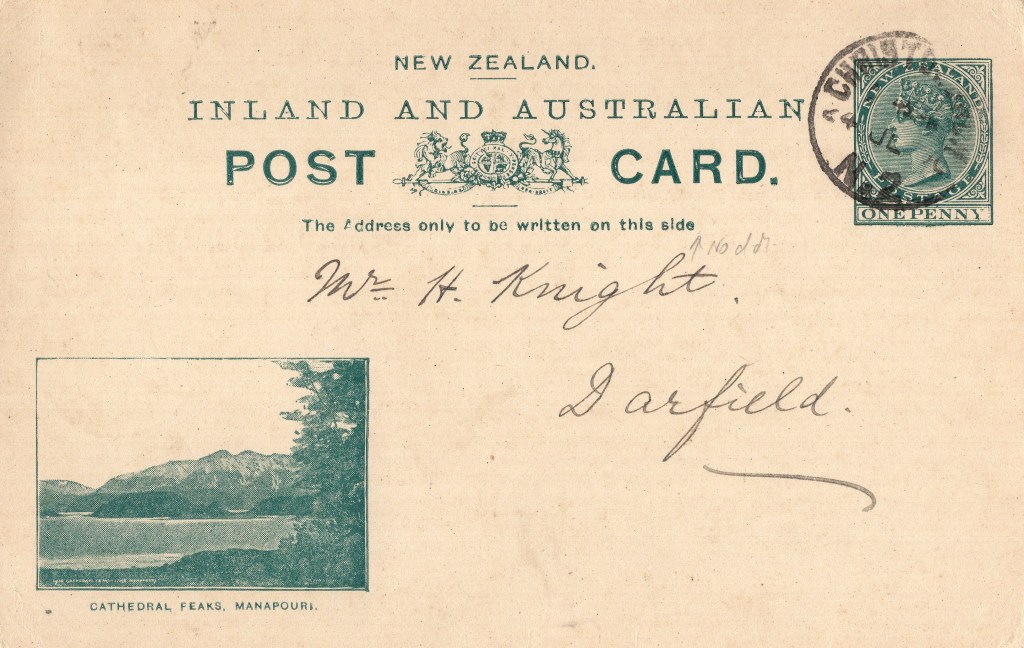 NEW ZEALAND.
INLAND AND AUSTRALIAN
POST CARD.
The Address only to be written on this side
NEW ZEALAND
POSTAGE
ONE PENNY
A
4 JL
N.Z
↑ No dot
Mr H. Knight.
Darfield.
CATHEDRAL PEAKS, MANAPOURI.